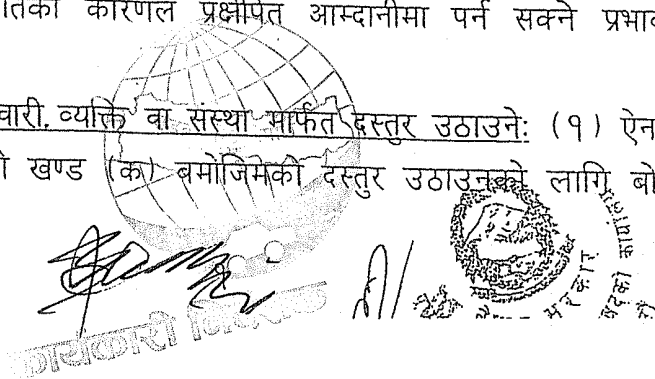 कारणले प्रक्षेपित आम्दानीमा पर्न सक्ने प्रभाव
व्यक्ति वा संस्था मार्फत दस्तुर उठाउने: (१) ऐन
खण्ड (क) बमोजिमको दस्तुर उठाउनको लागि बो
कार्यकारी निर्देशक